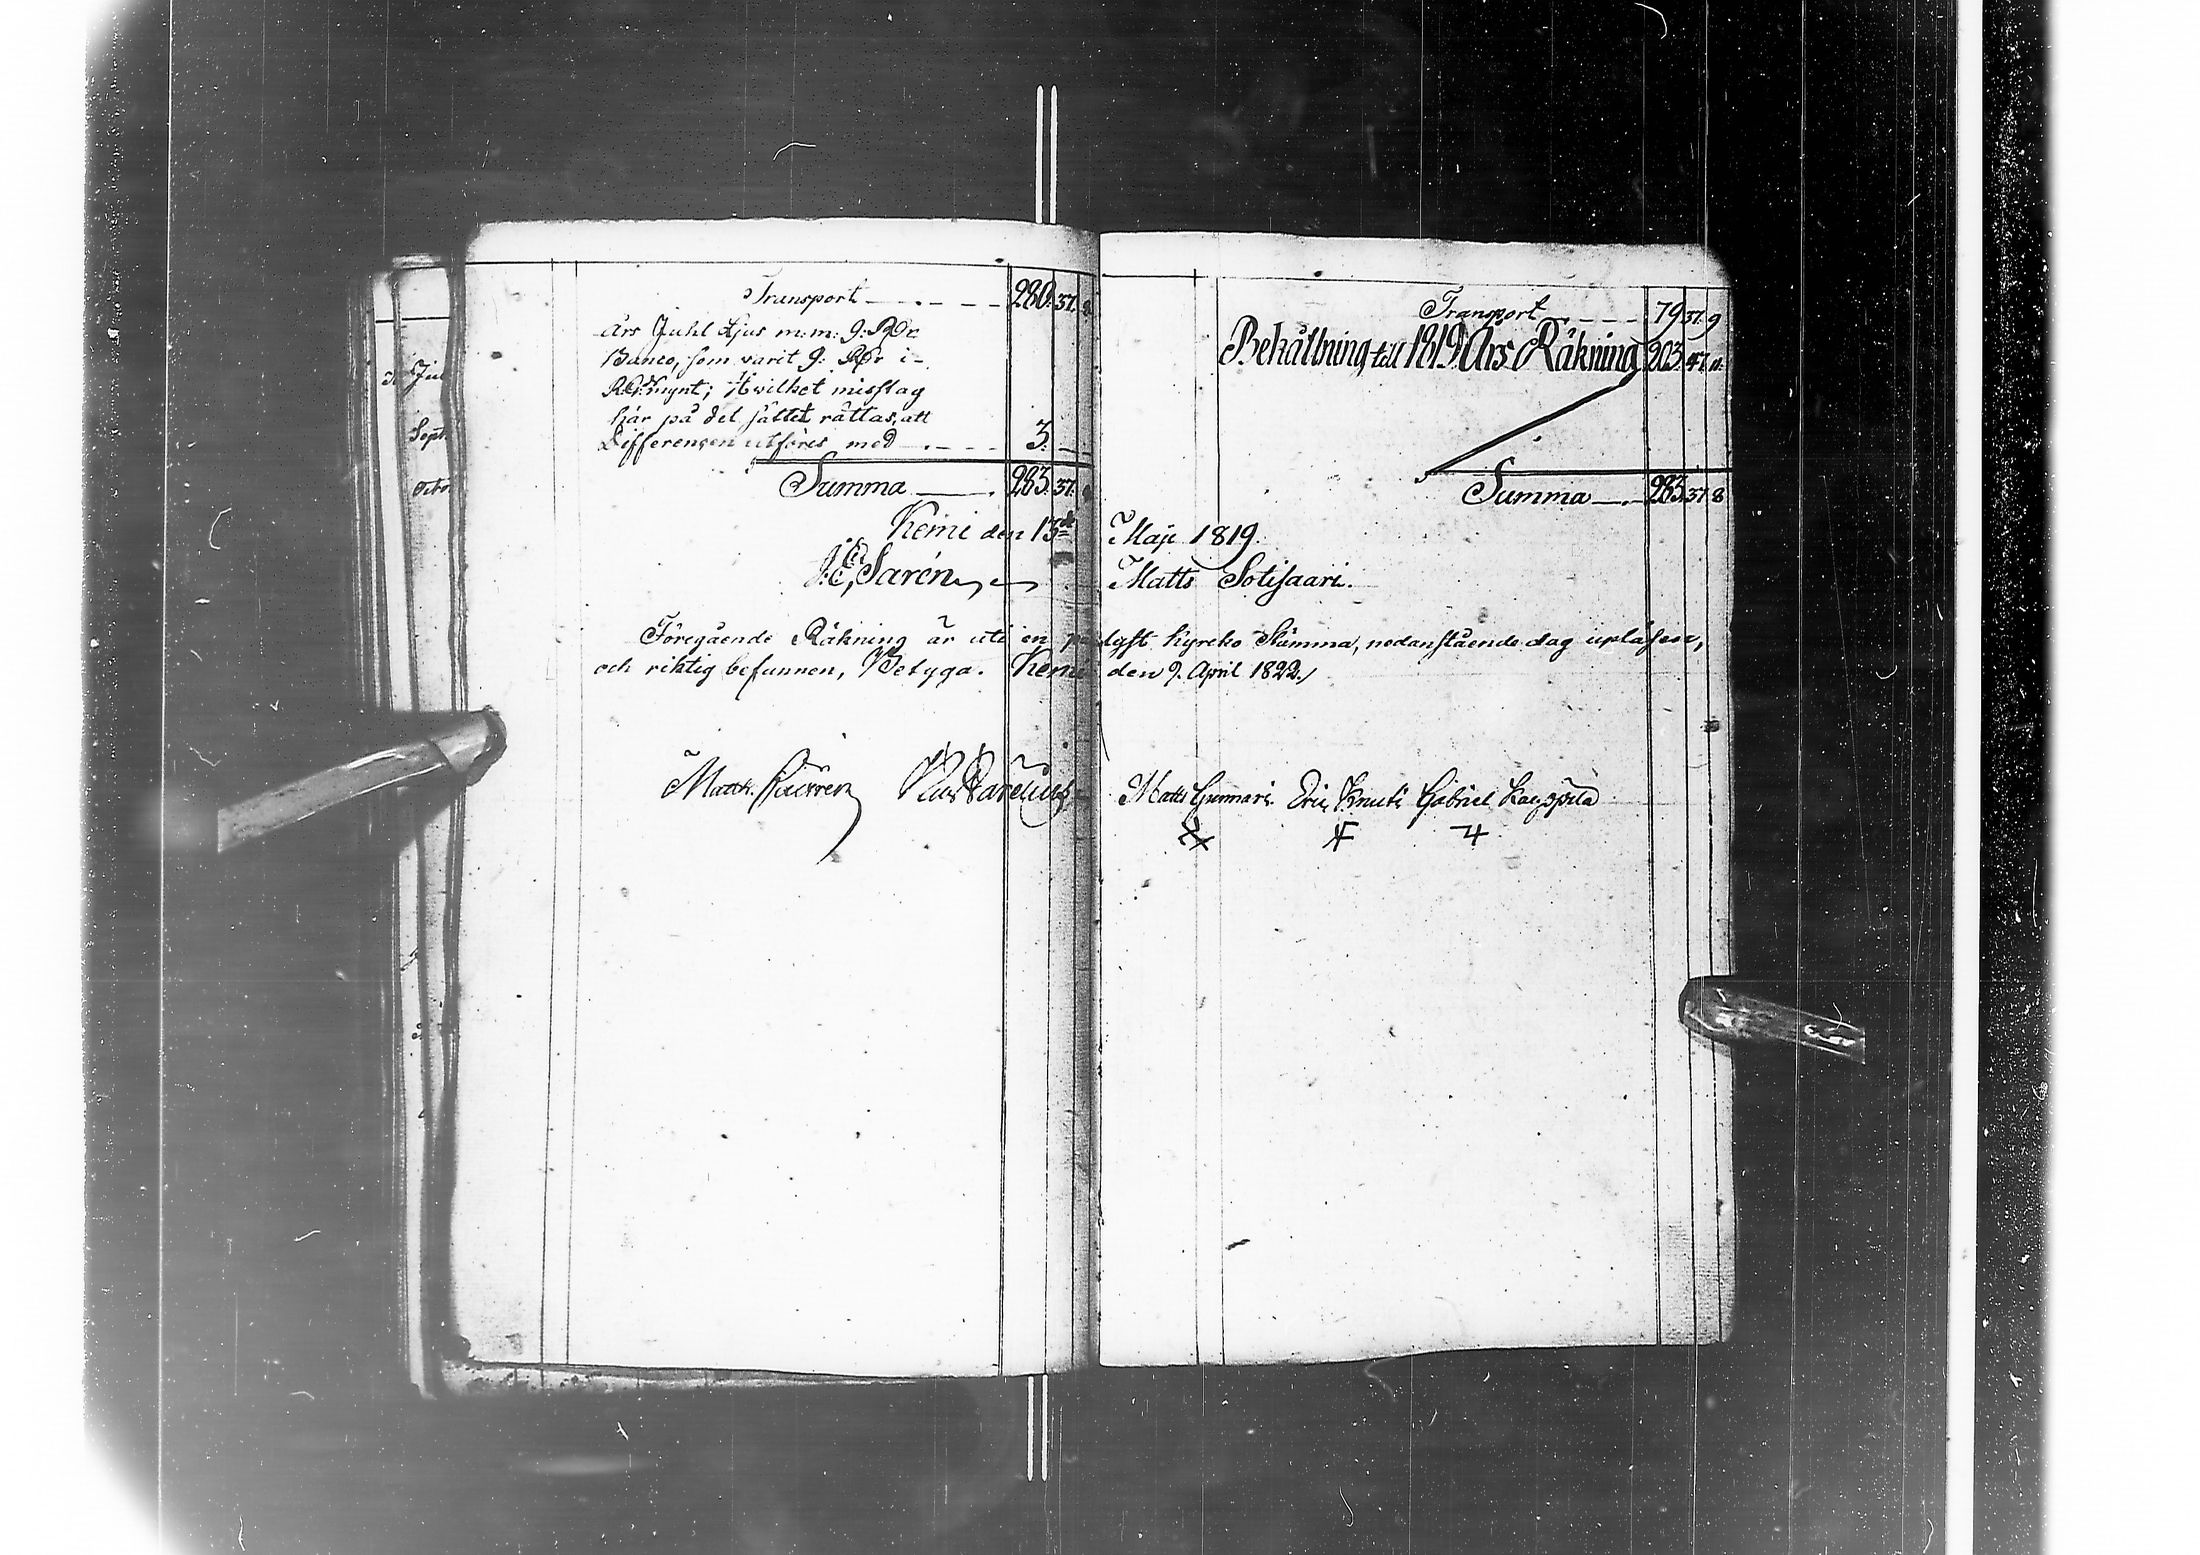 Transport 280. 37. 8
års Juhl Ljus m:m: 9: RDr
Banco, som varit 9: RDr i
RGdsmynt; Hwilket misstag
här på det sättet rättas, att
Differensen utföres med 3.
Summa 283. 37. 8
Kemi den 13de
J. E. Sarén
Jul
Sept:
Octo
Transport 79 37. 9
Behållning till 1819 Års Räkning 203. 47. 11.
Summa 283. 37 8
Maji 1819.
Matts Sotisaari.
Föregående Räkning är uti en pålyst Kyrcko Stämma, nedanstående dag upläsen,
och riktig befunnen, Betyga. Kemi den 9. April 1822.
Matth. Matts Gunnari Eric Knuti Gabriel Kauppila